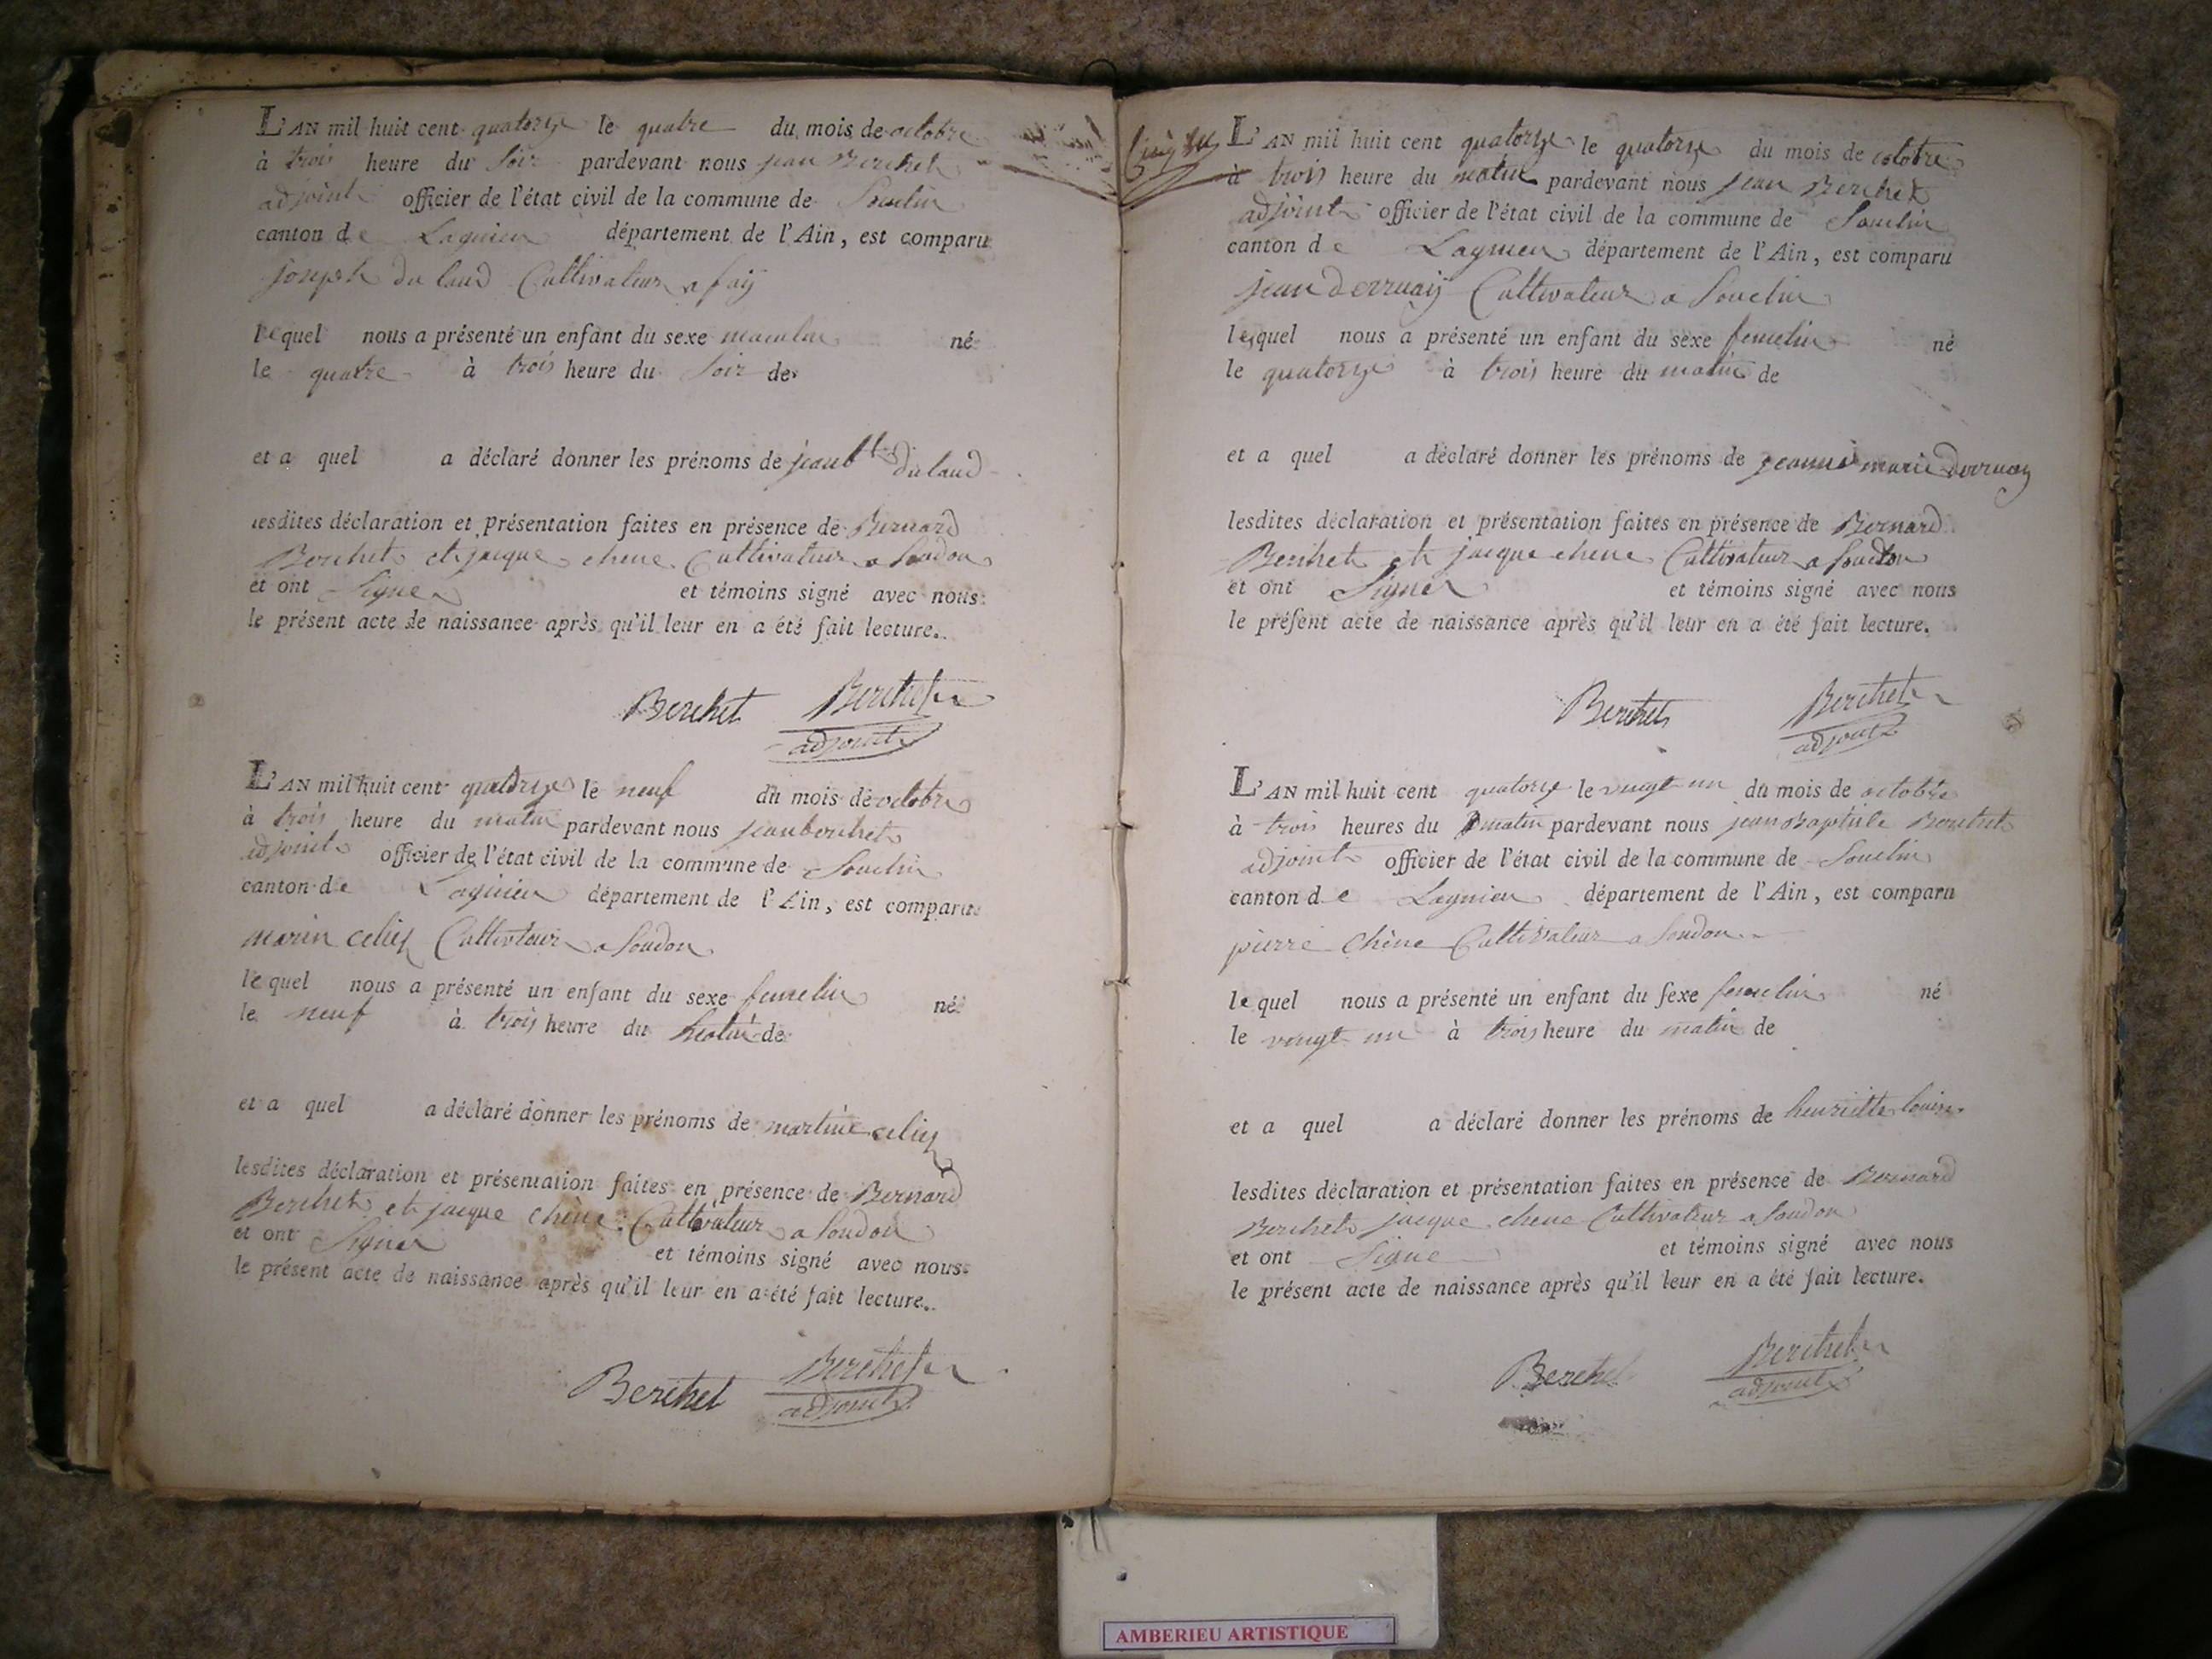 L'AN mil huit cent quatorze le quatre du mois de octobre
à trois heure du soir pardevant nous jean Berchet
adjoint officier de l'état civil de la commune de Souclin
canton de Lagnieu département de l'Ain, est comparu
joseph du laud Cultivateur a fay
lequel nous a présenté un enfant du sexe masculin né
le quatre à trois heure du soir de
et a quel a déclaré donner les prénoms de jean bte du laud
lesdites déclaration et présentation faites en présence de Bernard
Berchet et jacque chene Cultivateur a Soudon
et ont Signer et témoins signé avec nous
le présent acte de naissance après qu'il leur en a été fait lecture.
Berchet Berchet
adjoint
L'AN mil huit cent quatorze le neuf du mois de octobre
à trois heure du matin pardevant nous jean berchet
adjoint officier de l'état civil de la commune de Souclin
canton de Lagnieu département de l'Ain, est comparu
marin Cultivateur a Soudon
lequel nous a présenté un enfant du sexe femelin né
le neuf à trois heure du matin de
et a quel a déclaré donner les prénoms de martine
lesdites déclaration et présentation faites en présence de Bernard
Berchet et jacque chene Cultivateur a Soudon
et ont Signer et témoins signé avec nous
le présent acte de naissance après qu'il leur en a été fait lecture.
Berchet Berchet
adjoint
L'AN mil huit cent quatorze le quatorze du mois de octobre
à trois heure du matin pardevant nous jean Berchet
adjoint officier de l'état civil de la commune de Souclin
canton de Lagnieu département de l'Ain, est comparu
jean derruaz Cultivateur a Souclin
lequel nous a présenté un enfant du sexe femelin né
le quatorze à trois heure du matin de
et a quel a déclaré donner les prénoms de jeanne marie derruaz
lesdites déclaration et présentation faites en présence de Bernard
Berchet et jacque chene Cultivateur a Soudon
et ont Signer et témoins signé avec nous
le présent acte de naissance après qu'il leur en a été fait lecture.
Berchet Berchet
adjoint
L'AN mil huit cent quatorze le vingt un du mois de octobre
à trois heures du matin pardevant nous jean Baptiste Berchet
adjoint officier de l'état civil de la commune de Souclin
canton de Lagnieu département de l'Ain, est comparu
pierre Chene Cultivateur a Soudon
lequel nous a présenté un enfant du sexe femelin né
le vingt un à trois heure du matin de
et a quel a déclaré donner les prénoms de henriette louise
lesdites déclaration et présentation faites en présence de Bernard
Berchet jacque chene Cultivateur a Soudon
et ont Signe et témoins signé avec nous
le présent acte de naissance après qu'il leur en a été fait lecture.
Berchet Berchet
adjoint
AMBERIEU ARTISTIQUE